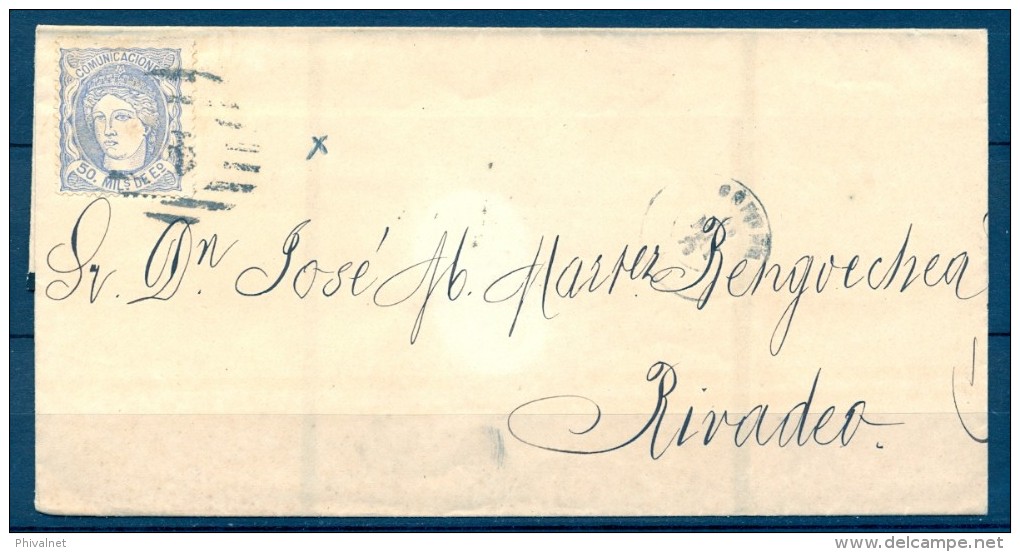 COMUNICACIONES
50. MILS DE Eo
x
Sr. Dn José M. Martez Bengoechea
Rivadeo.
Phivalnet
www.delcampe.net